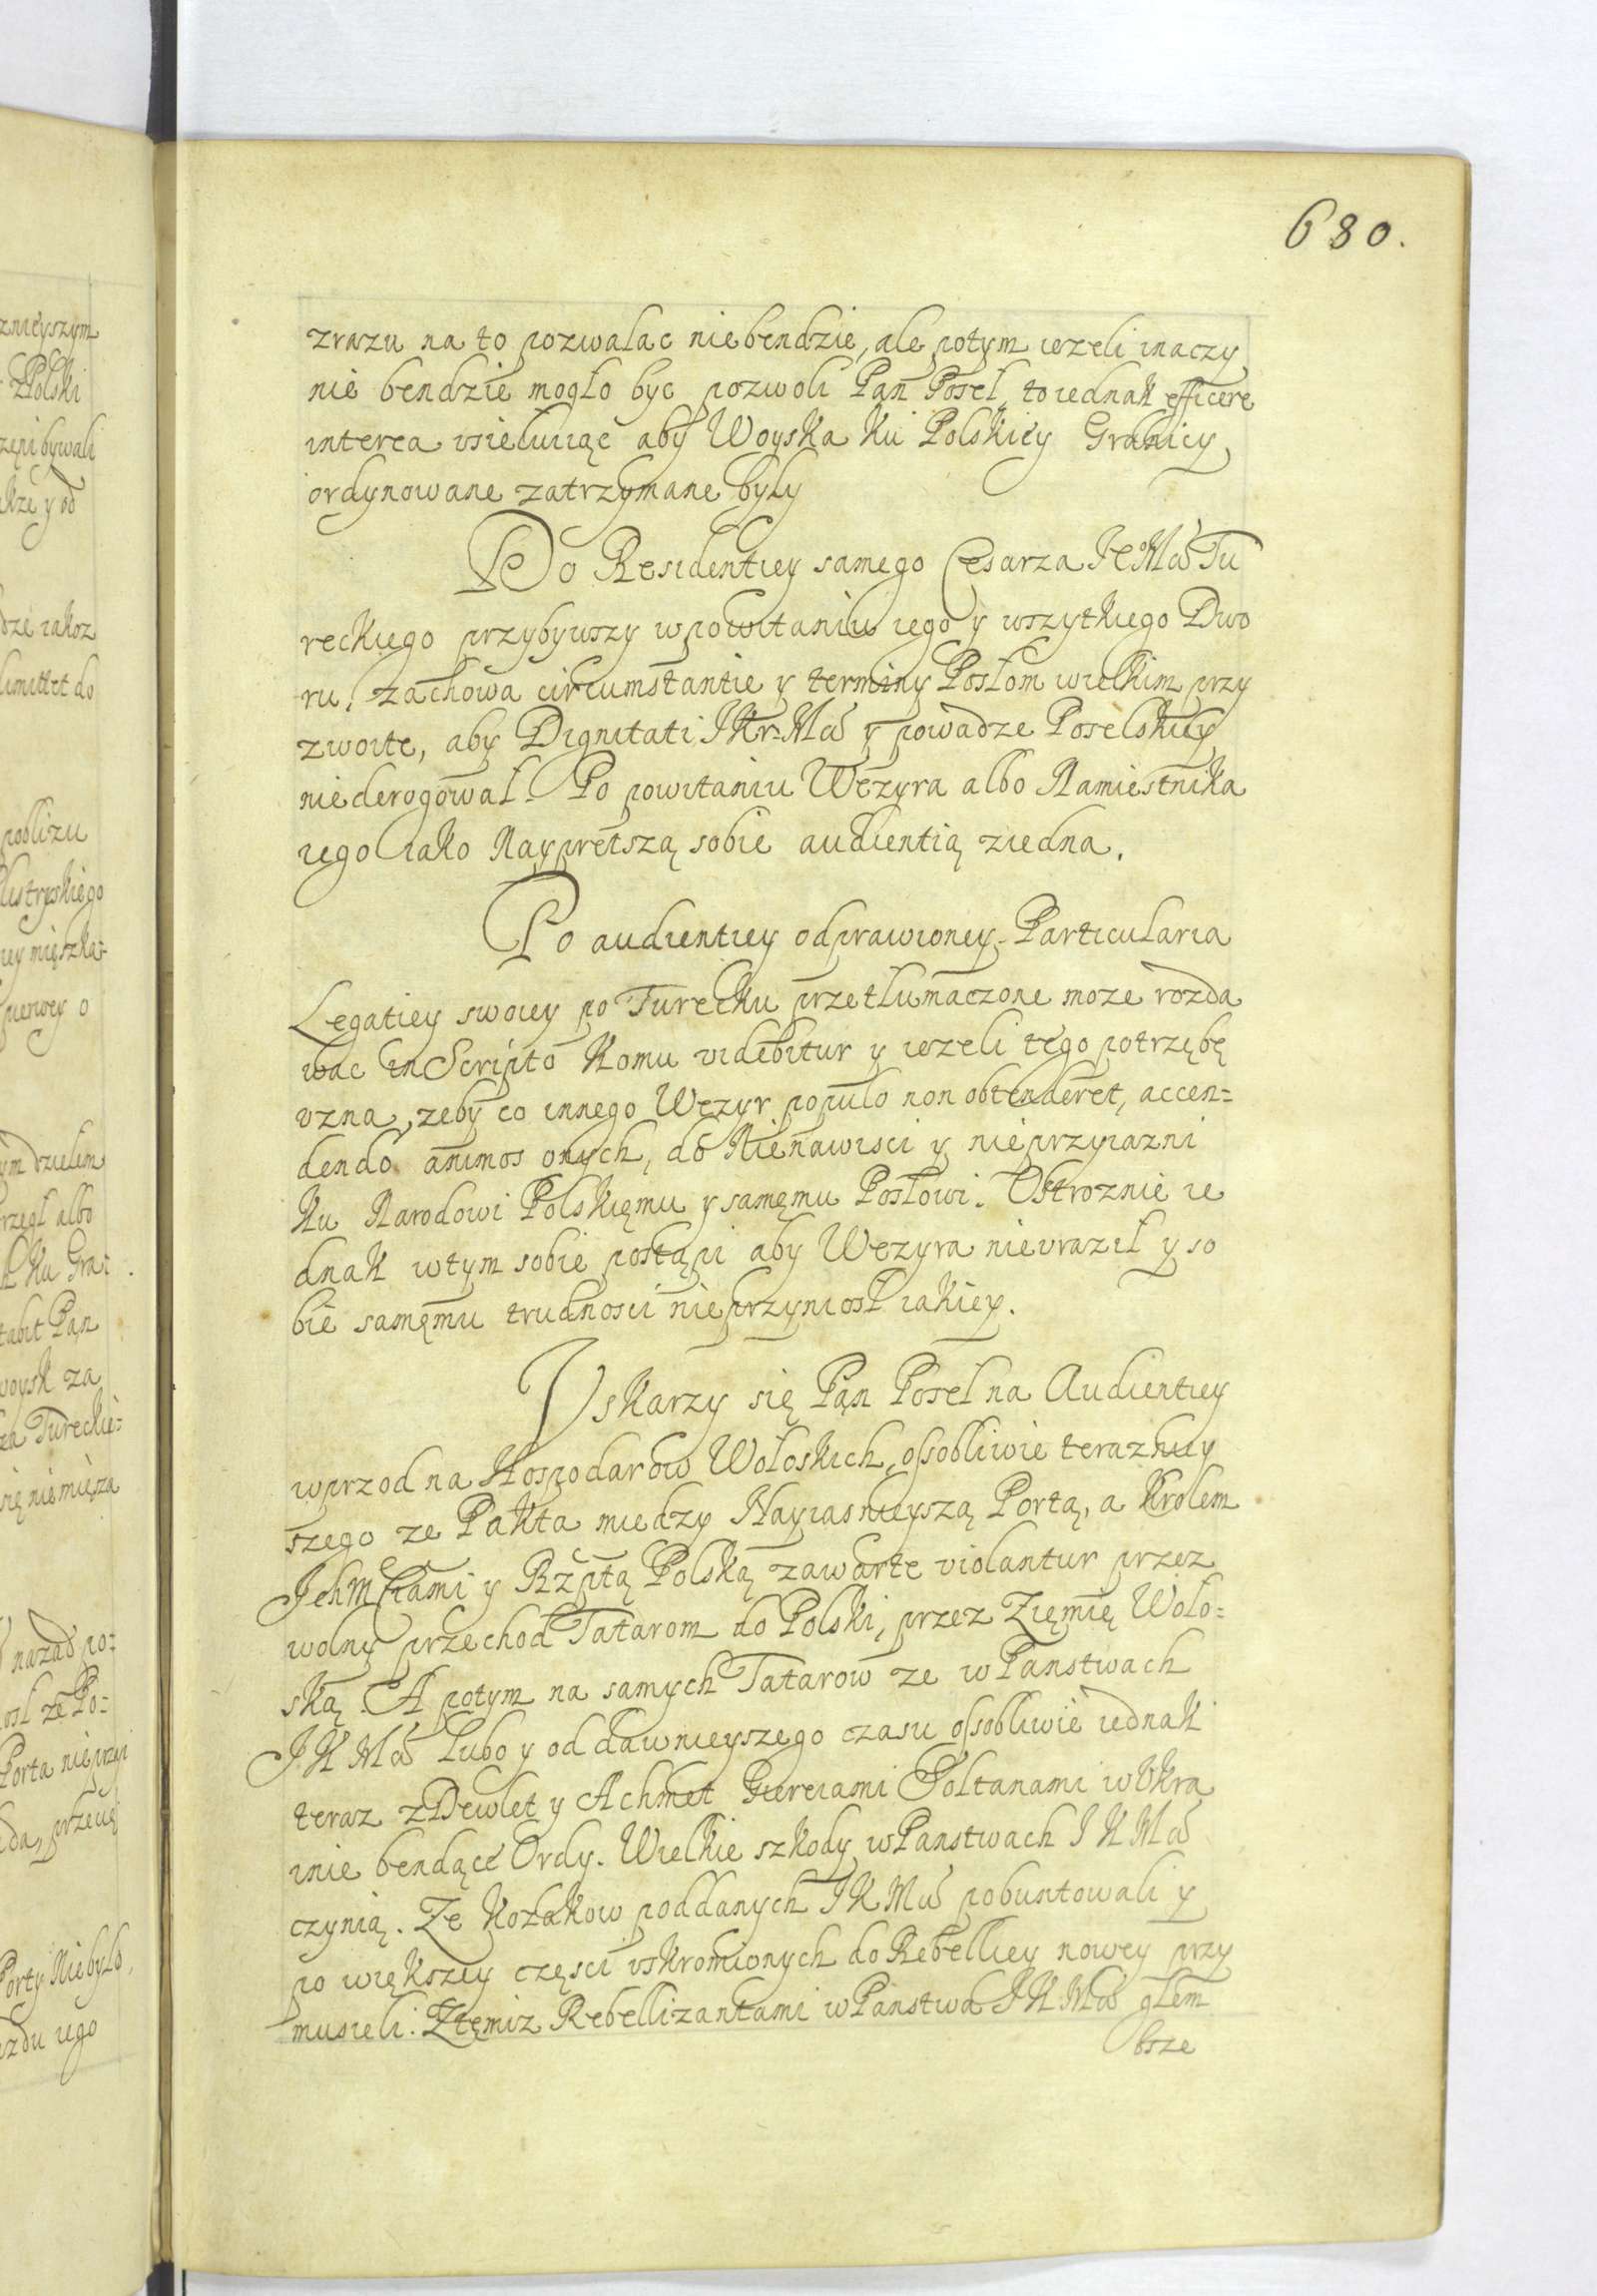 680.
zrazu na to pozwalac niebendzie, ale potym iezeli inaczy
nie bendzie mogło byc pozwoli Pąn Poseł, to iednak efficere
interea vsieluiąc aby Woyska ku Polskiey Granicy
ordynowane zatrzymane były
Do Residentiey samego Cesarza Je Mci Tu
reckiego przybywszy wpowitaniu iego y wszytkiego Dwo
ru, zachowa circumstantie y terminy Posłom wielkim przy
zwoite, aby Dignitati JKr: Mci y powadze Poselskiey
niederogował. Po powitaniu Wezyra albo Namiestnika
iego iako Nayprętszą sobie audientią ziedna.
Po audientiey odprawioney Particularia
Legatiey swoiey po Turecku przetłumaczone moze rozda
wac in Scripto komu videbitur y iezeli tego potrzębę
vzna, zeby co innego Wezyr populo non obtenderet, accen-
dendo animos onych, do Nienawisci y nieprzyiazni
ku Narodowi Polskięmu y samęmu Posłowi. Ostroznie ie
dnak wtym sobie postąpi aby Wezyra nievraził y so
bie samęmu trudnosci nieprzyniosł iakiey.
Vskarzy się Pąn Poseł na Audientiey
wprzod na Hospodarow Wołoskich, ossobliwie terazniey
szego ze Pakta miedzy Nayiasnieyszą Portą, a Krolem
Jch Mciami y Rzptą Polską zawarte violantur przez
wolny przechod Tatarom do Polski, przez Zięmię Woło-
ską. A potym na samych Tatarow ze w Panstwach
JK Mci lubo y od dawnieyszego czasu ossobliwie iednak
teraz z Dewlet y Achmet Giereiami Sołtanami w Vkra
inie bendące Ordy. Wielkie szkody w Panstwach JK Mci
czynią. Ze Kozakow poddanych JK Mci pobuntowali y
po większey częsci vskromionych do Rebelliey nowey przy
musieli. Ztęmiz Rebellizantami w Panstwa JK Mci głem
bsze